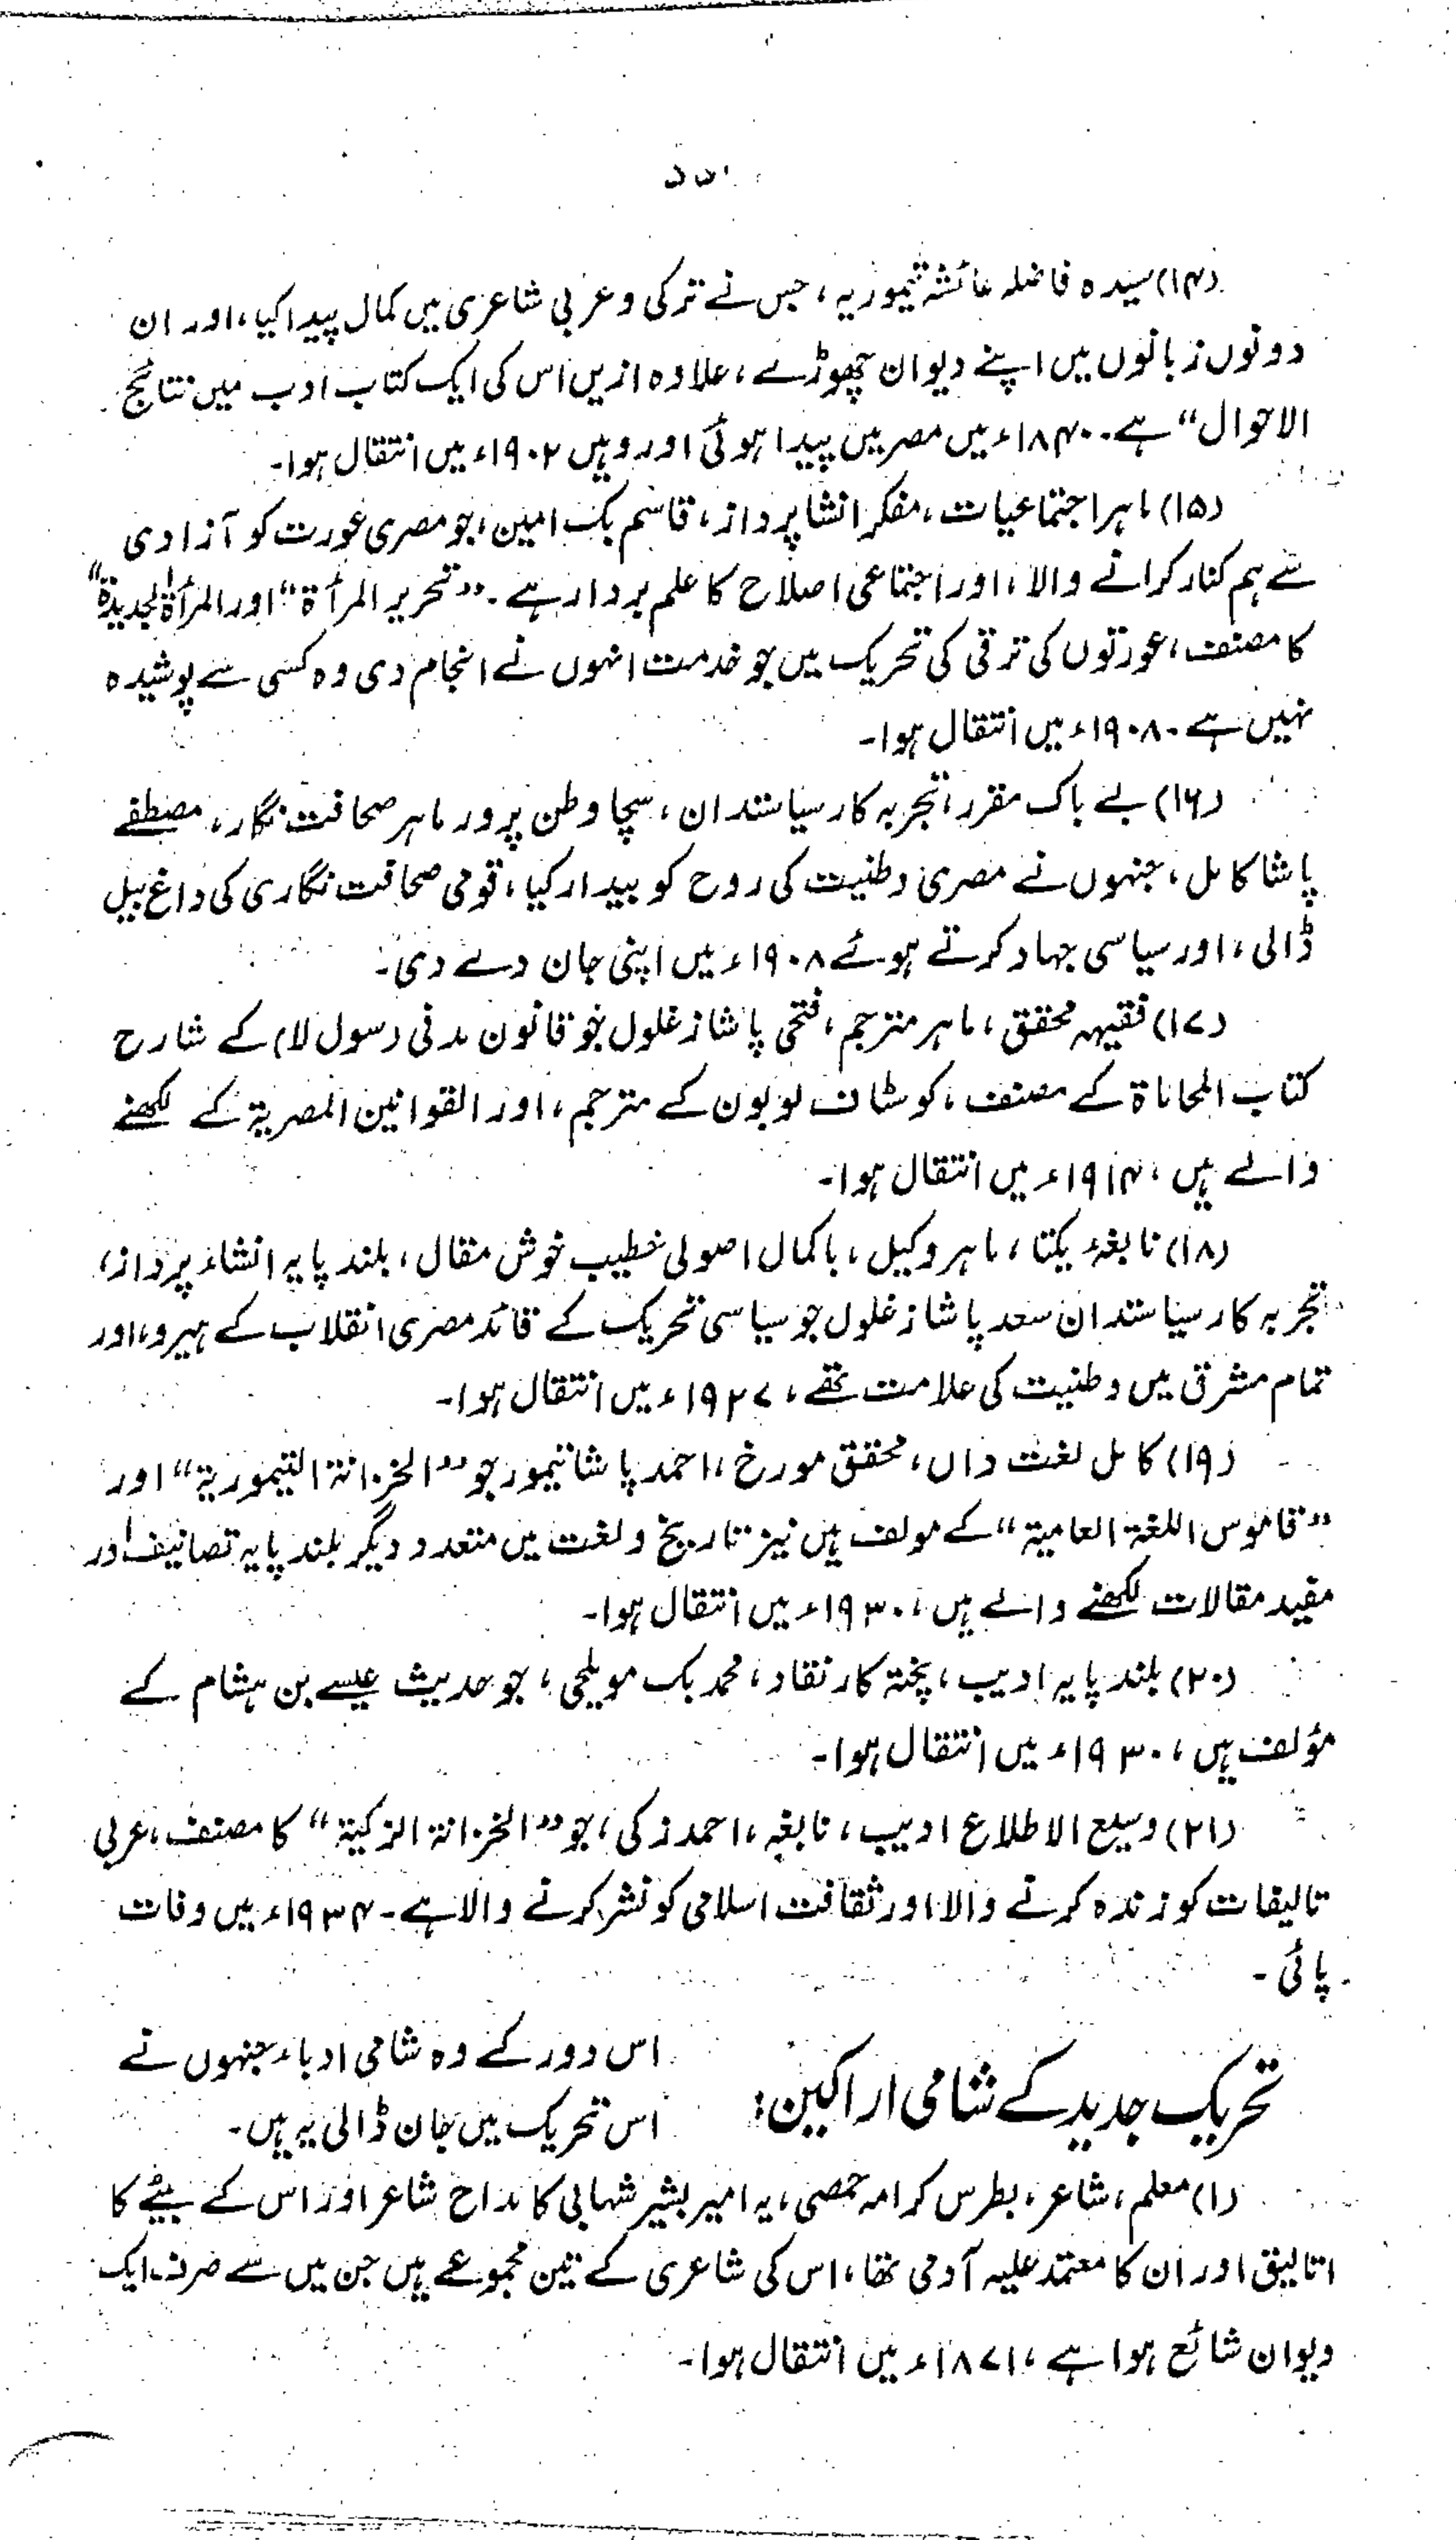 (۱۴) سیدہ فاضلہ عائشہ تیموریہ، جس نے ترکی و عربی شاعری میں کمال پیدا کیا، اور ان
دونوں زبانوں میں اپنے دیوان چھوڑے، علاوہ ازیں اس کی ایک کتاب ادب میں نتائج
الاحوال“ ہے۔ ۱۸۴۰ء میں مصر میں پیدا ہوئی اور وہیں ۱۹۰۲ء میں انتقال ہوا۔
(۱۵) ماہر اجتماعیات، مفکر انشا پرداز، قاسم بک امین، جو مصری عورت کو آزادی
سے ہم کنار کرانے والا، اور اجتماعی اصلاح کا علم بردار ہے۔ ”تحریر المرأۃ“ اور المرأۃ الجدیدۃ“
کا مصنف، عورتوں کی ترقی کی تحریک میں جو خدمت انہوں نے انجام دی وہ کسی سے پوشیدہ
نہیں ہے۔ ۱۹۰۸ء میں انتقال ہوا۔
(۱۶) بے باک مقرر، تجربہ کار سیاستدان، سچا وطن پرور ماہر صحافت نگار، مصطفے
پاشا کامل، جنہوں نے مصری وطنیت کی روح کو بیدار کیا، قومی صحافت نگاری کی داغ بیل
ڈالی، اور سیاسی جہاد کرتے ہوئے ۱۹۰۸ء میں اپنی جان دے دی۔
(۱۷) فقیہہ محقق، ماہر مترجم، فتحی پاشا زغلول جو قانون مدنی (سول لا) کے شارح
کتاب المحاناۃ کے مصنف، کوسٹاف لوبون کے مترجم، اور القوانین المصریۃ کے لکھنے
والے ہیں، ۱۹۱۴ء میں انتقال ہوا۔
(۱۸) نابغۂ یکتا، ماہر وکیل، باکمال اصولی خطیب خوش مقال، بلند پایہ انشاء پرداز،
تجربہ کار سیاستدان سعد پاشا زغلول جو سیاسی تحریک کے قائد مصری انقلاب کے ہیرو، اور
تمام مشرق میں وطنیت کی علامت تھے، ۱۹۲۷ء میں انتقال ہوا۔
(۱۹) کامل لغت داں، محقق مورخ، احمد پاشا تیمور جو ”الخزانۃ التیموریۃ“ اور
”قاموس اللغۃ العامیۃ“ کے مولف ہیں نیز تاریخ و لغت میں متعدد دیگر بلند پایہ تصانیف اور
مفید مقالات لکھنے والے ہیں، ۱۹۳۰ء میں انتقال ہوا۔
(۲۰) بلند پایہ ادیب، پختہ کار نقاد، محمد بک مویلحی، جو حدیث عیسے بن ہشام کے
مؤلف ہیں، ۱۹۳۰ء میں انتقال ہوا۔
(۲۱) وسیع الاطلاع ادیب، نابغہ، احمد زکی، جو ”الخزانۃ الزکیۃ“ کا مصنف، عربی
تالیفات کو زندہ کرنے والا اور ثقافت اسلامی کو نشر کرنے والا ہے۔ ۱۹۳۴ء میں وفات
پائی۔
تحریک جدید کے شامی اراکین:
اس دور کے وہ شامی ادباء جنہوں نے
اس تحریک میں جان ڈالی یہ ہیں۔
(۱) معلم، شاعر، بطرس کرامہ حمصی، یہ امیر بشیر شہابی کا مداح شاعر اور اس کے بیٹے کا
اتالیق اور ان کا معتمد علیہ آدمی تھا، اس کی شاعری کے تین مجموعے ہیں جن میں سے صرف ایک
دیوان شائع ہوا ہے، ۱۸۷۱ء میں انتقال ہوا۔